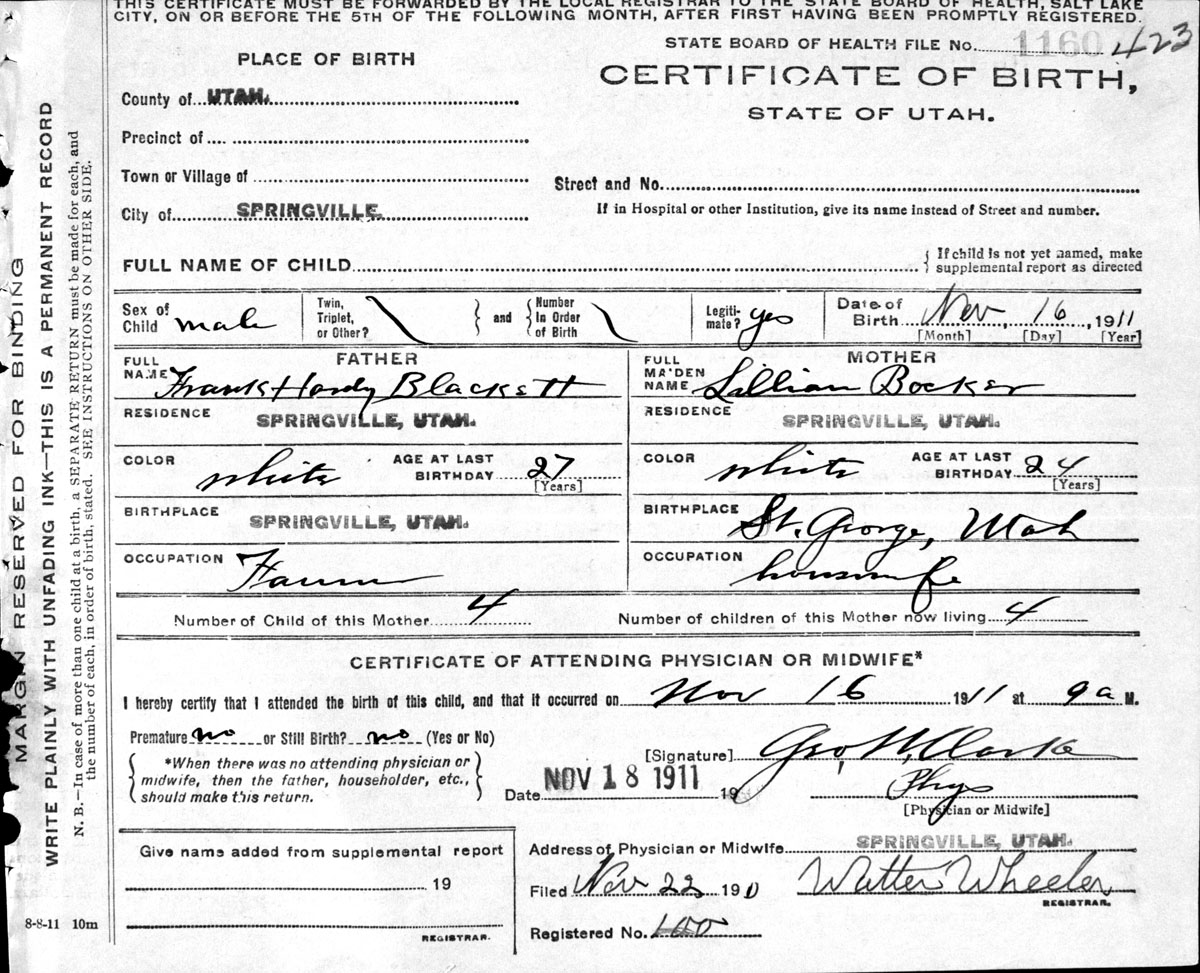 THIS CERTIFICATE MUST BE FORWARDED BY THE LOCAL REGISTRAR TO THE STATE BOARD OF HEALTH, SALT LAKE
CITY, ON OR BEFORE THE 5TH OF THE FOLLOWING MONTH, AFTER FIRST HAVING BEEN PROMPTLY REGISTERED.
STATE BOARD OF HEALTH FILE No. 1160 423
PLACE OF BIRTH
CERTIFICATE OF BIRTH,
STATE OF UTAH.
County of UTAH.
Precinct of
Town or Village of
Street and No.
City of SPRINGVILLE.
If in Hospital or other Institution, give its name instead of Street and number.
FULL NAME OF CHILD { If child is not yet named, make supplemental report as directed
Sex of Child male Twin, Triplet, or Other? } and { Number In Order of Birth Legiti- mate? yes Date of Birth Nov, 16, 1911
[Month] [Day] [Year]
FATHER
FULL NAME Frank Hardy Blackett
RESIDENCE SPRINGVILLE, UTAH.
COLOR white AGE AT LAST BIRTHDAY 27 [Years]
BIRTHPLACE SPRINGVILLE, UTAH.
OCCUPATION Farmer
MOTHER
FULL MAIDEN NAME Lillian Bocker
RESIDENCE SPRINGVILLE, UTAH.
COLOR white AGE AT LAST BIRTHDAY 24 [Years]
BIRTHPLACE St. George, Utah
OCCUPATION housewife
Number of Child of this Mother 4 Number of children of this Mother now living 4
CERTIFICATE OF ATTENDING PHYSICIAN OR MIDWIFE*
I hereby certify that I attended the birth of this child, and that it occurred on Nov 16 1911 at 9 a M.
Premature no or Still Birth? no (Yes or No)
{ *When there was no attending physician or midwife, then the father, householder, etc., should make this return. }
[Signature] Geo, H, Clarke
Date NOV 18 1911 19 Phys
[Physician or Midwife]
Give name added from supplemental report
19
REGISTRAR.
Address of Physician or Midwife SPRINGVILLE, UTAH.
Filed Nov 22 1911 Walter Wheeler
REGISTRAR.
Registered No. 100
8-8-11 10m
MARGIN RESERVED FOR BINDING
WRITE PLAINLY WITH UNFADING INK—THIS IS A PERMANENT RECORD
N. B.—In case of more than one child at a birth, a SEPARATE RETURN must be made for each, and
the number of each, in order of birth, stated. SEE INSTRUCTIONS ON OTHER SIDE.